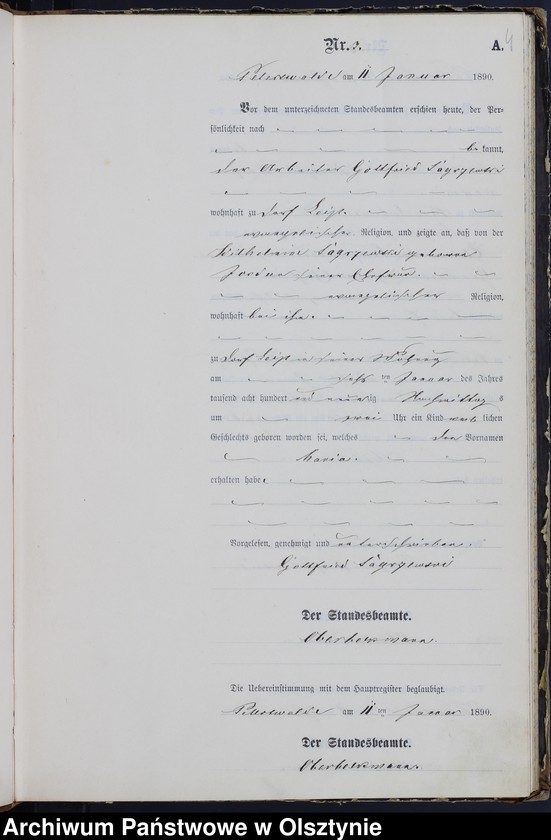 Nr. 3.
A. 4
Peterswalde am 11 Januar 1890.
Vor dem unterzeichneten Standesbeamten erschien heute, der Per-
sönlichkeit nach
be kannt,
der Arbeiter Gottfried
wohnhaft zu Dorf
evangelischer Religion, und zeigte an, daß von der
Wilhelmine geborene
seiner Ehefrau
evangelischer Religion,
wohnhaft bei ihm
zu Dorf in seiner Wohnung
am ten Januar des Jahres
tausend acht hundert und neunzig Nachmittag s
um zwei Uhr ein Kind weib lichen
Geschlechts geboren worden sei, welches den Vornamen
Maria.
erhalten habe.
Vorgelesen, genehmigt und unterschrieben.
Gottfried
Der Standesbeamte.
Die Uebereinstimmung mit dem Hauptregister beglaubigt.
Peterswalde am 11 ten Januar 1890.
Der Standesbeamte.
Archiwum Państwowe w Olsztynie